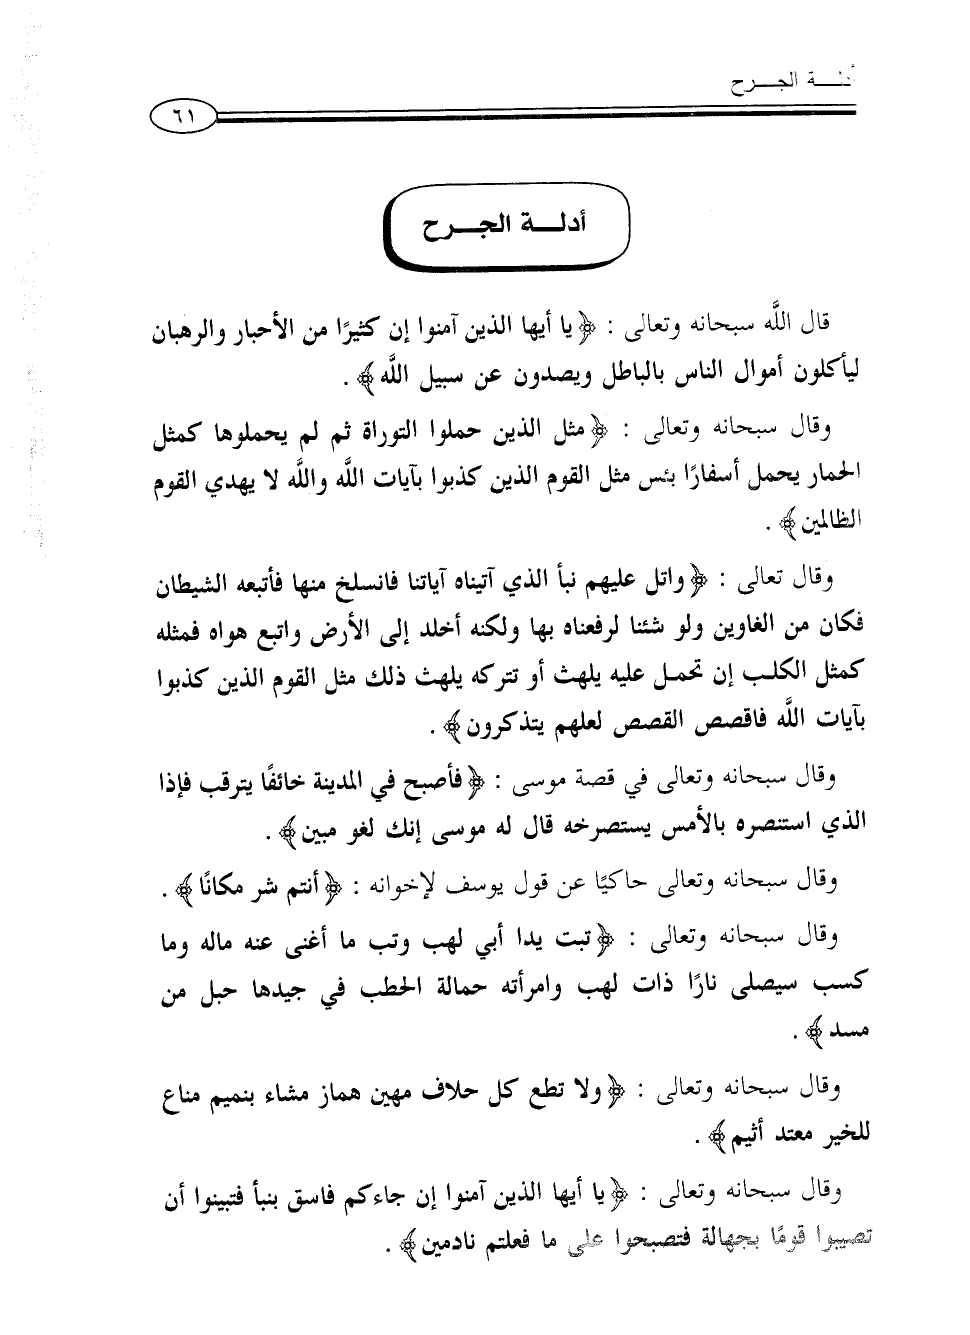 أدلـــة الجـــرح
٦١
أدلـــة الجـــرح
قال اللَّه سبحانه وتعالى : ﴿يا أيها الذين آمنوا إن كثيرًا من الأحبار والرهبان
ليأكلون أموال الناس بالباطل ويصدون عن سبيل اللَّه﴾ .
وقال سبحانه وتعالى : ﴿مثل الذين حملوا التوراة ثم لم يحملوها كمثل
الحمار يحمل أسفارًا بئس مثل القوم الذين كذبوا بآيات اللَّه واللَّه لا يهدي القوم
الظالمين﴾ .
وقال تعالى : ﴿واتل عليهم نبأ الذي آتيناه آياتنا فانسلخ منها فأتبعه الشيطان
فكان من الغاوين ولو شئنا لرفعناه بها ولكنه أخلد إلى الأرض واتبع هواه فمثله
كمثل الكلب إن تحمل عليه يلهث أو تتركه يلهث ذلك مثل القوم الذين كذبوا
بآيات اللَّه فاقصص القصص لعلهم يتذكرون﴾ .
وقال سبحانه وتعالى في قصة موسى : ﴿فأصبح في المدينة خائفًا يترقب فإذا
الذي استنصره بالأمس يستصرخه قال له موسى إنك لغو مبين﴾ .
وقال سبحانه وتعالى حاكيًا عن قول يوسف لإخوانه : ﴿أنتم شر مكانًا﴾ .
وقال سبحانه وتعالى : ﴿تبت يدا أبي لهب وتب ما أغنى عنه ماله وما
كسب سيصلى نارًا ذات لهب وامرأته حمالة الحطب في جيدها حبل من
مسد﴾ .
وقال سبحانه وتعالى : ﴿ولا تطع كل حلاف مهين هماز مشاء بنميم مناع
للخير معتد أثيم﴾ .
وقال سبحانه وتعالى : ﴿يا أيها الذين آمنوا إن جاءكم فاسق بنبأ فتبينوا أن
تصيبوا قومًا بجهالة فتصبحوا على ما فعلتم نادمين﴾ .